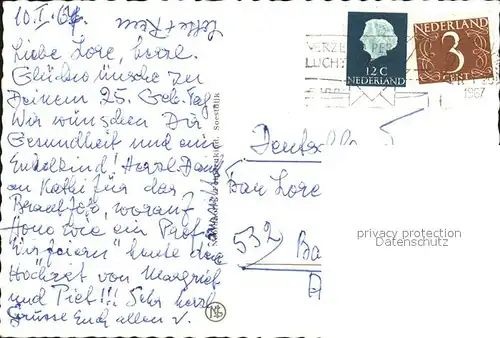 10. I. 67.
Lotte + Rein
Liebe Lore, herzl.
Glückwünsche zu
Deinem 25. Geb. Tag
Wir wünschen Dir
Gesundheit und ein
Enkelkind! Herzl. Dank
an Käthi für das
Brautfoto, worauf
Hono wie ein Prof.
Wir feiern heute die
Hochzeit von Margriet
und Piet!!! Sehr herzl.
Grüsse Euch allen v.
NEDERLAND
12 C
NEDERLAND
3
CENT
VERZE
PER
LUCHT
1967
Frau Lore
532
Ba
privacy protection
Datenschutz